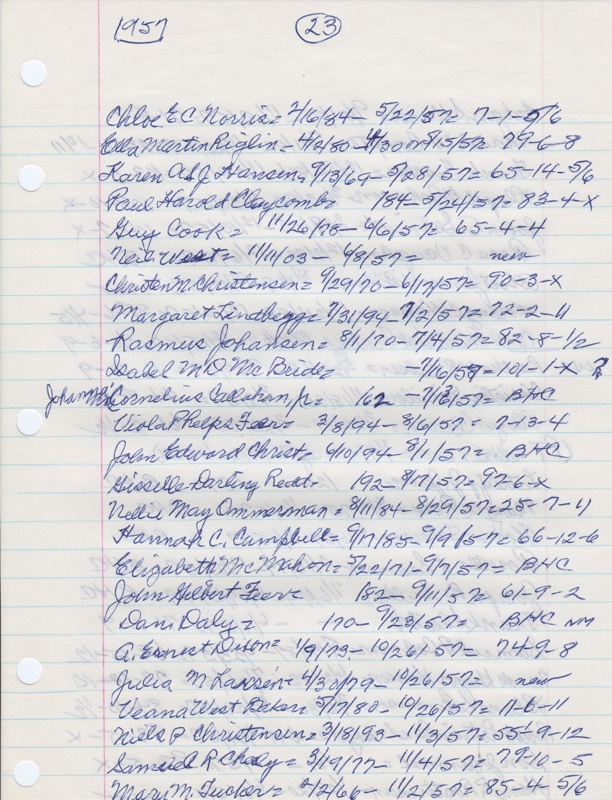 1957 23
Chloe E C Norris = 2/16/84 - 5/22/57 = 7-1-5/6
Ella Martin Riglin = 4/2/80 - 4/30 or 5/5/57 79-6-8
Karen A S J Hansen, 9/13/69 - 5/28/57 = 65-14-5/6
Paul Harold Claycomb = /84 - 5/24/57 = 83-4-x
Guy Cook = 11/26/78 - 6/6/57 = 65-4-4
Neil West = 11/11/03 - 6/8/57 = new
Christen N. Christensen = 9/29/70 - 6/17/57 = 90-3-x
Margaret Lindbegg = 7/31/94 - 7/2/57 = 72-2-11
Rasmus Johansen = 8/1/70 - 7/4/57 = 82-8-1/2
Isabel M D McBride = - 7/16/57 = 101-1-x ?
Cornelius Callahan Jr. = 162 - 7/13/57 = BHC
Viola Phelps Feer = 3/8/94 - 8/6/57 = 7-13-4
John Edward Christ = 6/10/94 - 8/1/57 = BHC
Gisselle Darling Redd = 192 - 8/17/57 = 97-6-x
Nellie May Ommerman = 8/11/84 - 8/29/57 = 25-7-4
Hannah C. Campbell = 9/17/85 - 9/9/57 = 66-12-6
Elizabeth McMahon = 5/22/71 - 9/7/57 = BHC
John Gilbert Feer = 182 - 9/11/57 = 61-9-2
Dan Daly = 170 - 9/23/57 = BHC NM
A. Ernest Dixon = 1/9/73 - 10/26/57 = 74-9-8
Julia M Larsen = 4/30/79 - 10/26/57 = new
Veana West Baker = 5/17/80 - 10/26/57 = 11-6-11
Niels P Christensen = 3/18/93 - 11/3/57 = 55-9-12
Samuel R Chely = 3/19/77 - 11/4/57 = 79-10-5
Mary M. Tucker = 2/2/66 - 11/2/57 = 85-4-5/6